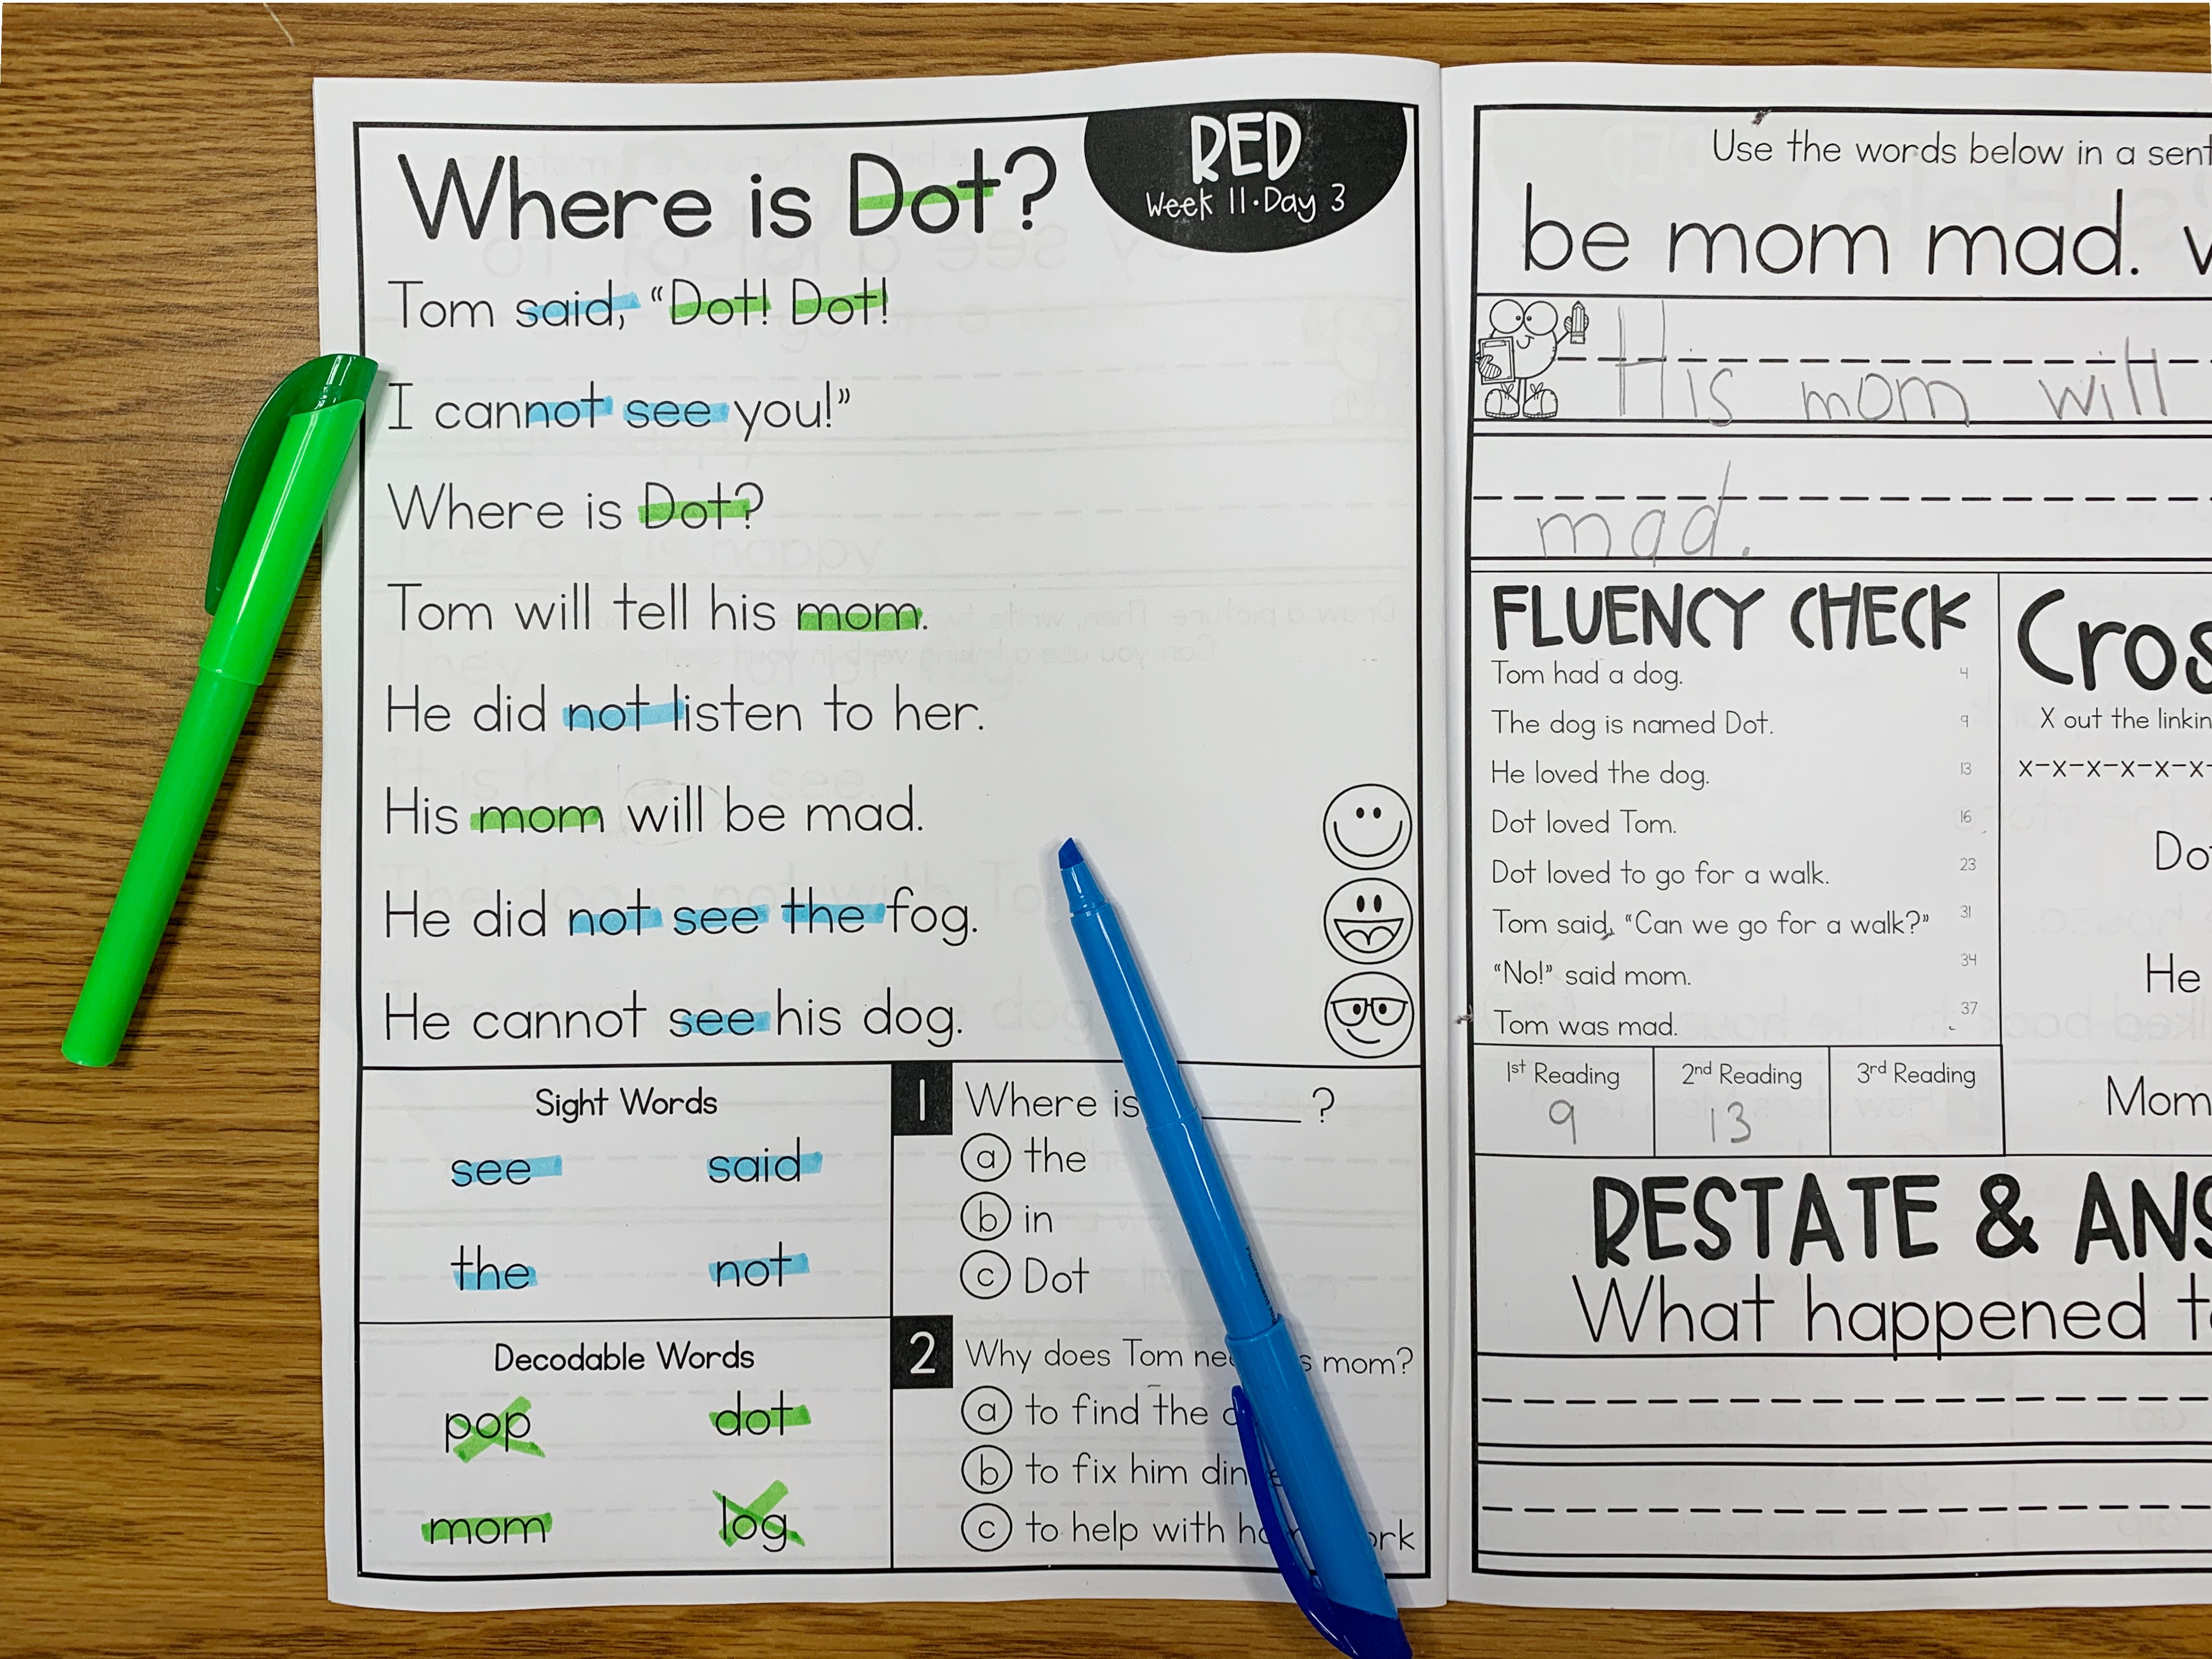 Where is Dot?
RED
Week 11•Day 3
Tom said, “Dot! Dot!
I cannot see you!”
Where is Dot?
Tom will tell his mom.
He did not listen to her.
His mom will be mad.
He did not see the fog.
He cannot see his dog.
Sight Words
see said
the not
Decodable Words
pop dot
mom log
1 Where is ?
a the
b in
c Dot
2 Why does Tom mom?
a to find the
b to fix him
c to help with
Use the words below in a
be mom mad.
His mom will
mad.
FLUENCY CHECK
Tom had a dog. 4
The dog is named Dot. 9
He loved the dog. 13
Dot loved Tom. 16
Dot loved to go for a walk. 23
Tom said, “Can we go for a walk?” 31
“No!” said mom. 34
Tom was mad. 37
1st Reading 2nd Reading 3rd Reading
9 13
X out the
x-x-x-x-x-x-
He
Mom
RESTATE &
What happened